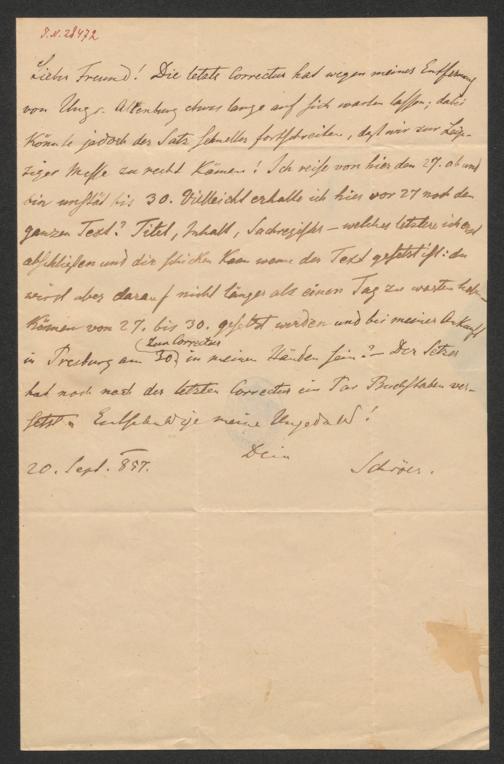 I.N. 28472
Lieber Freund! Die letzte Correctur hat wegen meiner Entfernung
von Ung. Altenburg etwas lange auf sich warten lassen; dabei
könnte jedoch der Satz schneller fortschreiten, daß wir zur Leip-
ziger Messe zu recht kämen! Ich reise von hier den 27. ab und
bin unstät bis 30. Vielleicht erhalte ich hier vor 27 noch den
ganzen Text? Titel, Inhalt, Sachregister – welches letztere ich erst
abschließen und dir schicken kann wenn der Text gesetzt ist: du
wirst aber darauf nicht länger als einen Tag zu warten haben
können vom 27. bis 30. gesetzt werden und bei meiner Ankunft
zur Correctur
in Presburg am 30. in meinen Händen sein? – Der Setzer
hat noch nach der letzten Correctur ein Par Buchstaben ver-
setzt. Entschuldige meine Ungeduld!
Dein
20. Sept. 857. Schröer.